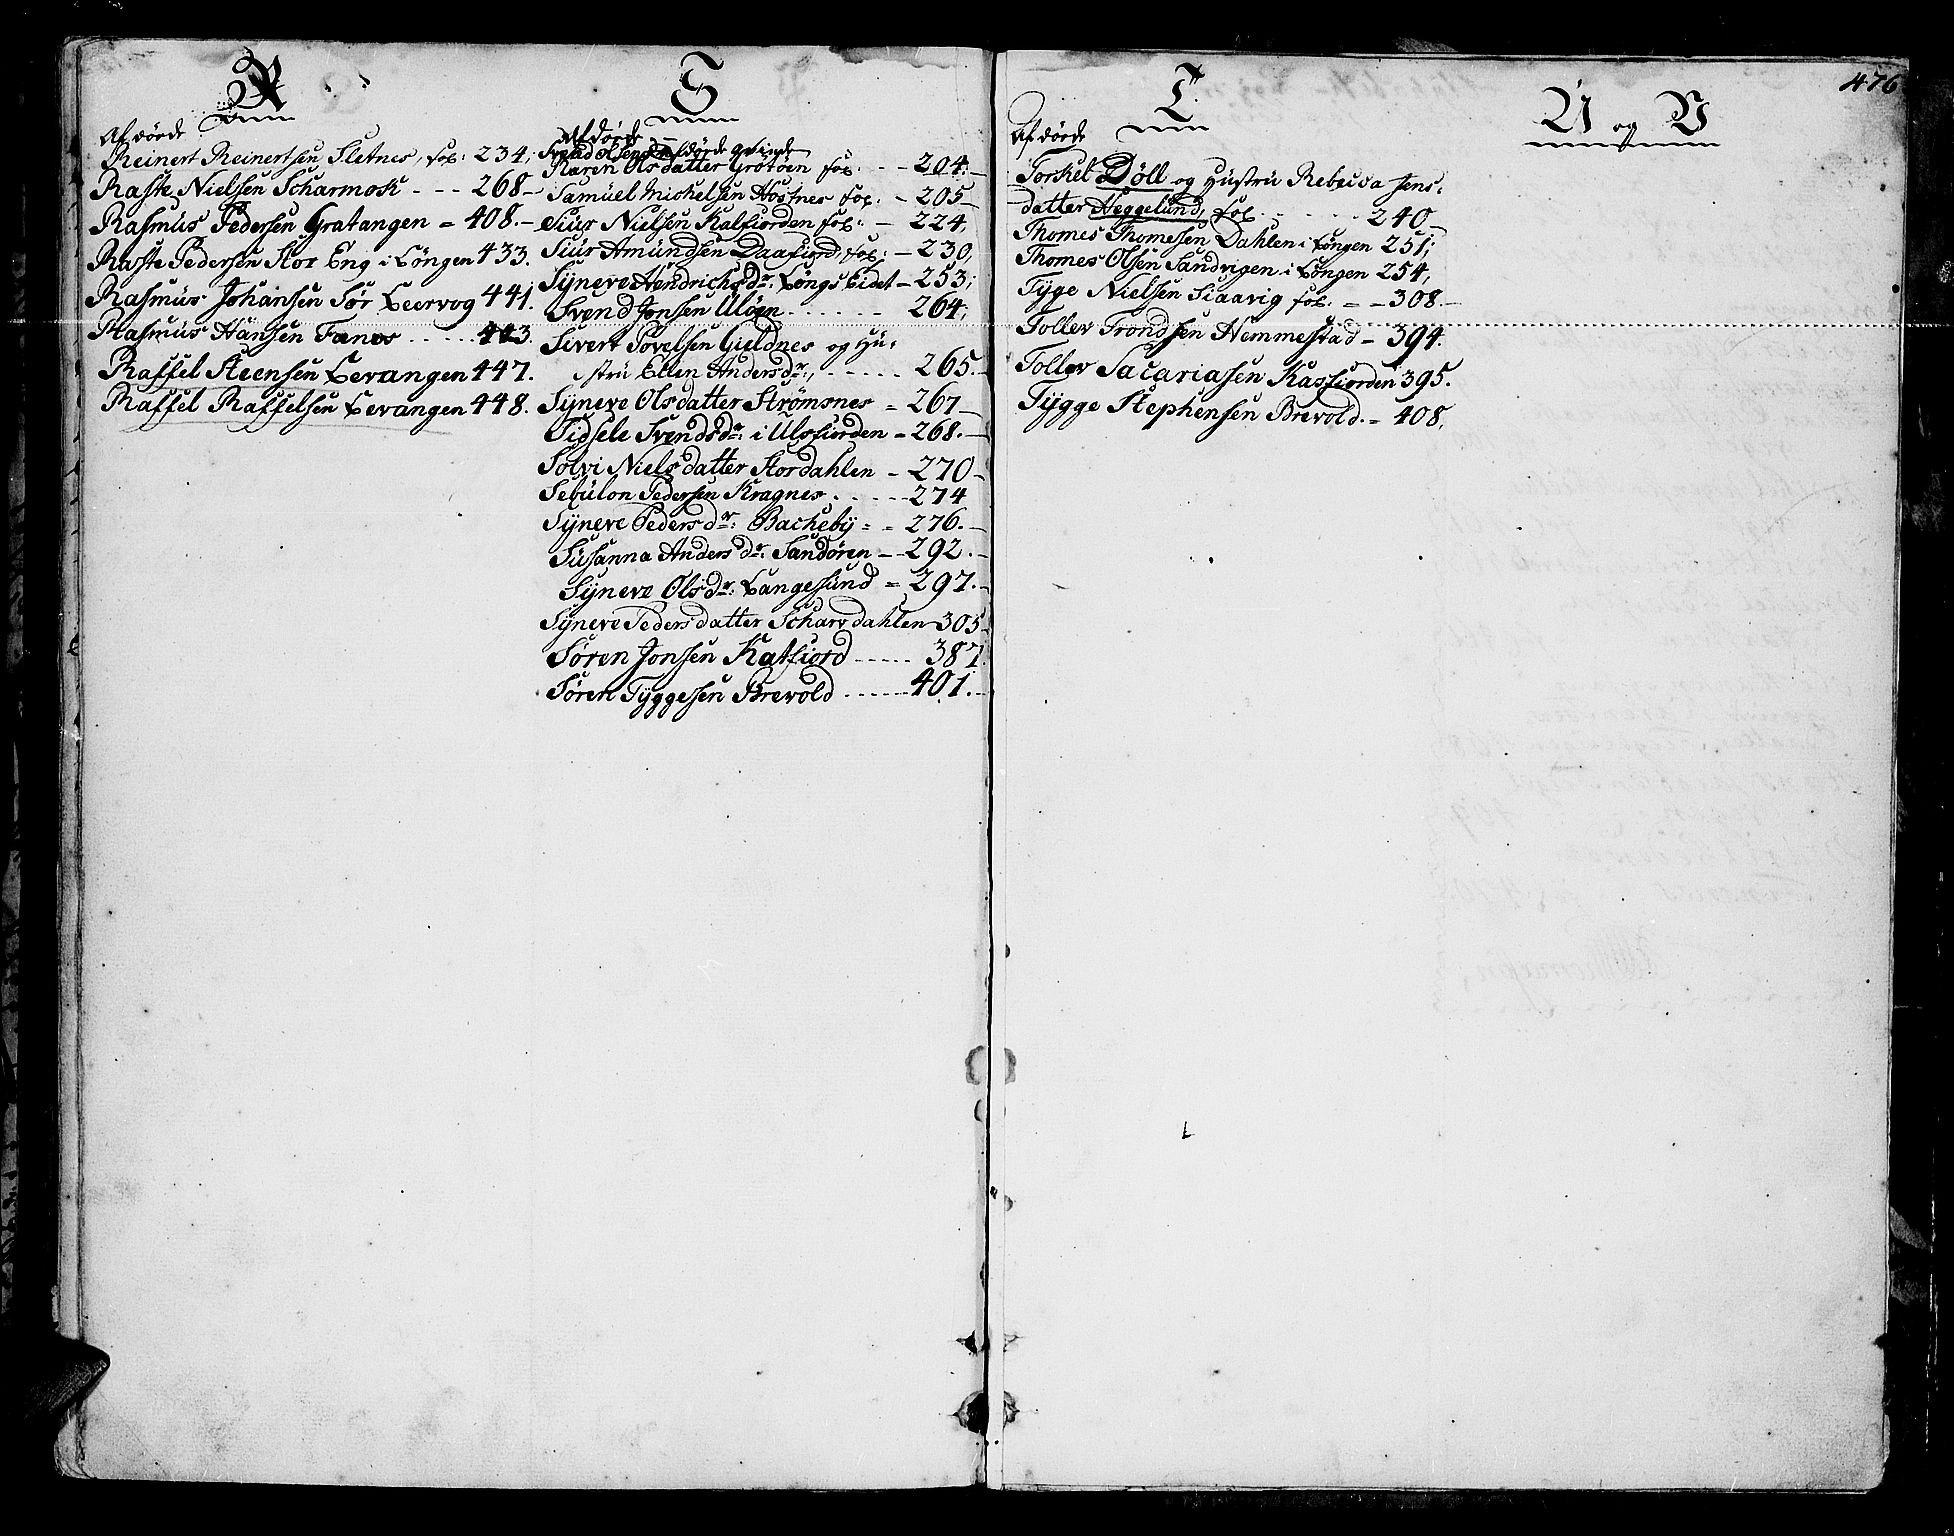 R
Afdøde
Reinert Reinertsen Sletnes, fol: 234,
Raste Nielsen Scharmosk - - - 268 -
Rasmus Pedersen Gratangen = 408. -
Raste Pedersen Stor Eng i Löngen 433.
Rasmus Johansen Sör Leervog 441.
Rasmus Hansen Fanes . . . . . 443.
Raffel Steensen Levangen 447.
Raffel Raffelsen Levangen 448.
S
Afdøde
Svend Olsens afdøde qvinde
Karen Olsdatter Grötöen fol: - - 204. -
Samuel Mickelsen Høstnes fol: - 205 -
Siur Nielsen Kalfiorden fol: - 224,
Siur Amundsen Daafiord, fol: - 230,
Synneve Hendrichsdr: Löngs Eidet - 253;
Svend Jonsen Ulöen . . . . . . - 264;
Sivert Povelsen Gieldnes og Hu=
stru Ellen Andersdr:, - - - - - 265. -
Syneve Olsdatter Strömsnes = 267 -
Sidsele Svendsdr: i Ulsfiorden = 268. -
Solvi Nielsdatter Stordahlen - 270 -
Sebulon Pedersen Kragnes . . - - - 274
Syneve Pedersdr: Backeby = - 276. -
Susanna Andersdr: Sandören - - 292. -
Syneve Olsdr: Langesund = 297. -
Syneve Pedersdatter Scharvdahlen 305 -
Søren Jonsen Katfiord - - - - - 387.
Søren Tyggesen Brevold - - - - - 401. -
T.
Afdøde
Torkel Döll og Hustru Rebecka Jens-
datter Heggelund, fol. - - - - - - 240 -
Thomes Thomesen Dahlen i Löngen 251;
Thomes Olsen Sandvigen i Löngen 254,
Tyge Nielsen Siaavig fol: - - 308 -
Tollev Trondsen Hemmestad - 394.
Tollev Sacariasen Kasfiorden 395.
Tygge Stephensen Brevold. = 408,
U og V
476